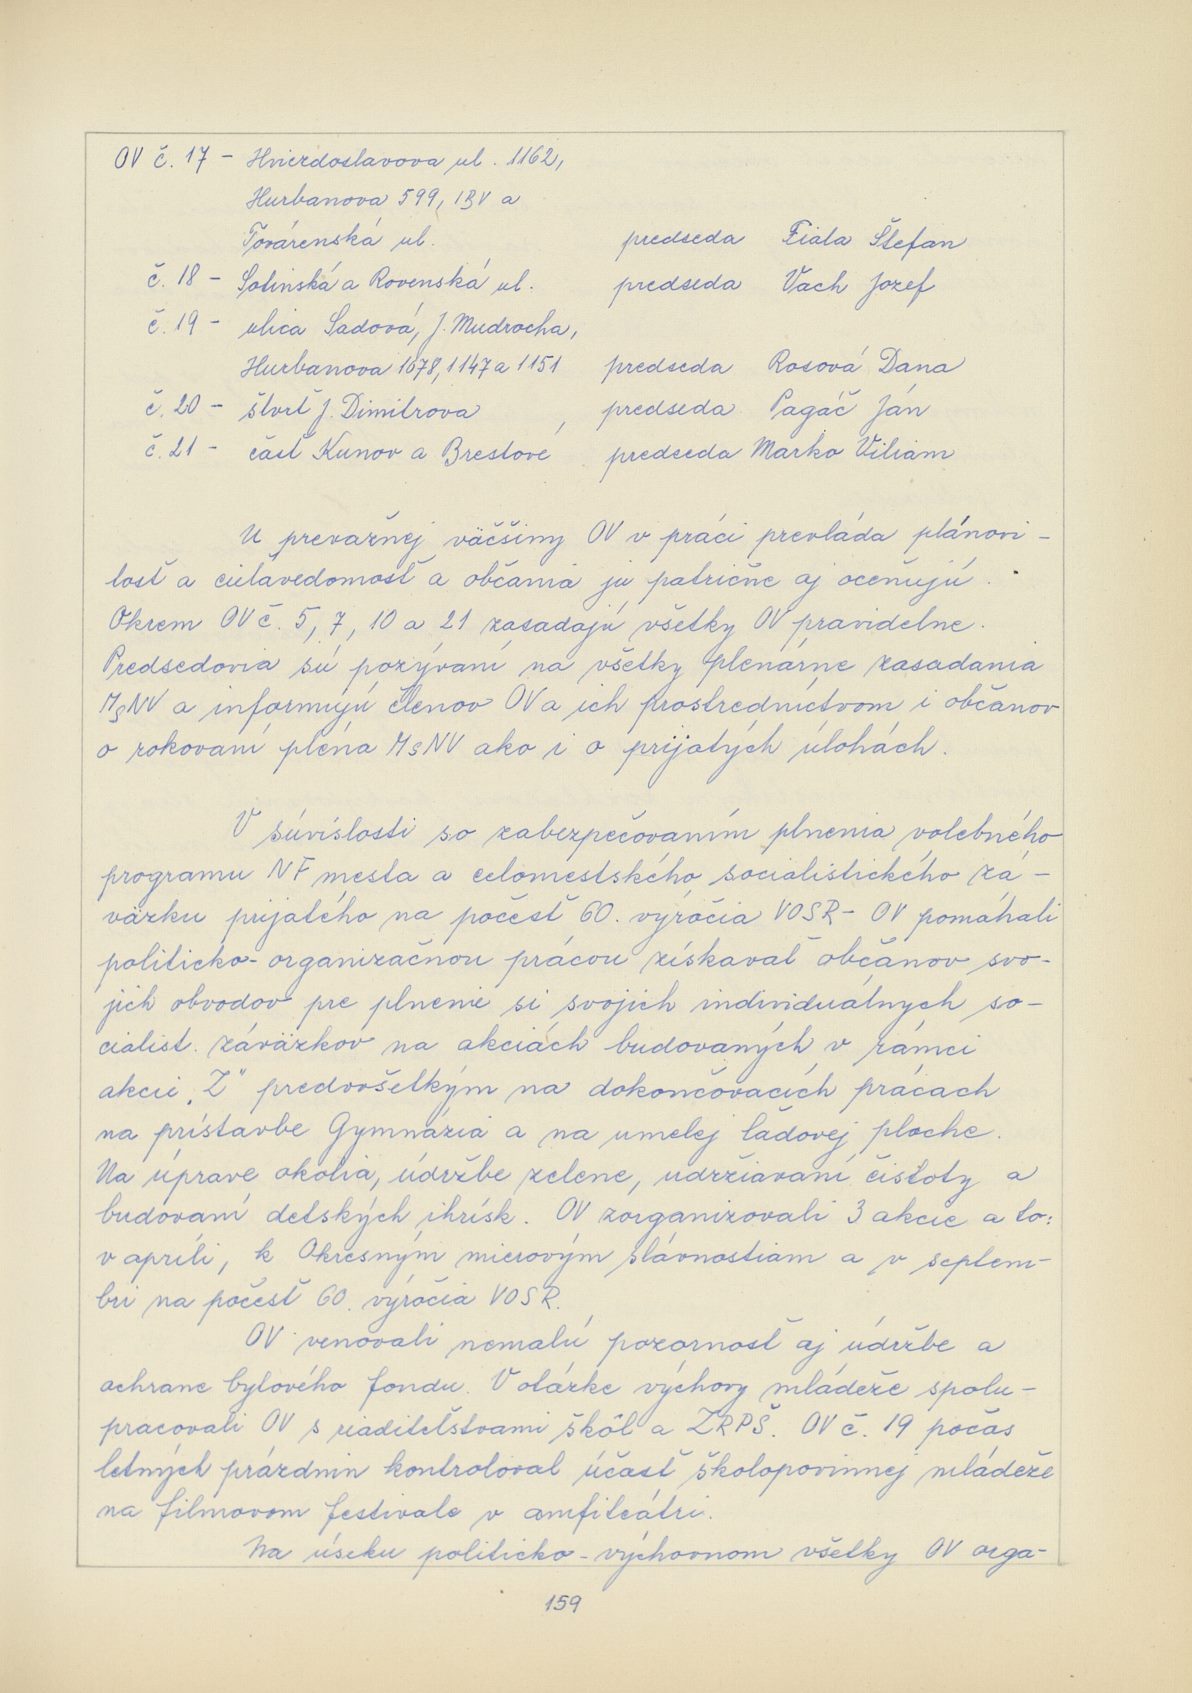 OV č. 17 - Hviezdoslavova ul. 1162,
Hurbanova 599, IBV a
Továrenská ul. predseda Fiala Štefan
č. 18 - Sotinská a Rovenská ul. predseda Vach Jozef
č. 19 - ulica Sadová, J. Mudrocha,
Hurbanova 1678, 1147 a 1151 predseda Rosová Dana
č. 20 - štvrť J. Dimitrova , predseda Pagáč Ján
č. 21 - časť Kunov a Brestové predseda Marko Viliam
U prevažnej väčšiny OV v práci prevláda plánovi-
tosť a cieľavedomosť a občania ju patrične aj oceňujú.
Okrem OV č. 5, 7, 10 a 21 zasadajú všetky OV pravidelne.
Predsedovia sú pozývaní na všetky plenárne zasadania
MsNV a informujú členov OV a ich prostredníctvom i občanov
o rokovaní pléna MsNV ako i o prijatých úlohách.
V súvislosti so zabezpečovaním plnenia volebného
programu NF mesta a celomestského socialistického zá-
väzku prijatého na počesť 60. výročia VOSR - OV pomáhali
politicko-organizačnou prácou získavať občanov svo-
jich obvodov pre plnenie si svojich individuálnych so-
cialist. záväzkov na akciách budovaných v rámci
akcii „Z" predovšetkým na dokončovacích prácach
na prístavbe Gymnázia a na umelej ľadovej ploche.
Na úprave okolia, údržbe zelene, udržiavaní čistoty a
budovaní detských ihrísk. OV zorganizovali 3 akcie a to:
v apríli, k Okresným mierovým slávnostiam a v septem-
bri na počesť 60. výročia VOSR.
OV venovali nemalú pozornosť aj údržbe a
ochrane bytového fondu. V otázke výchovy mládeže spolu-
pracovali OV s riaditeľstvami škôl a ZRPŠ. OV č. 19 počas
letných prázdnin kontroloval účasť školopovinnej mládeže
na filmovom festivale v amfiteátri.
Na úseku politicko-výchovnom všetky OV orga-
159